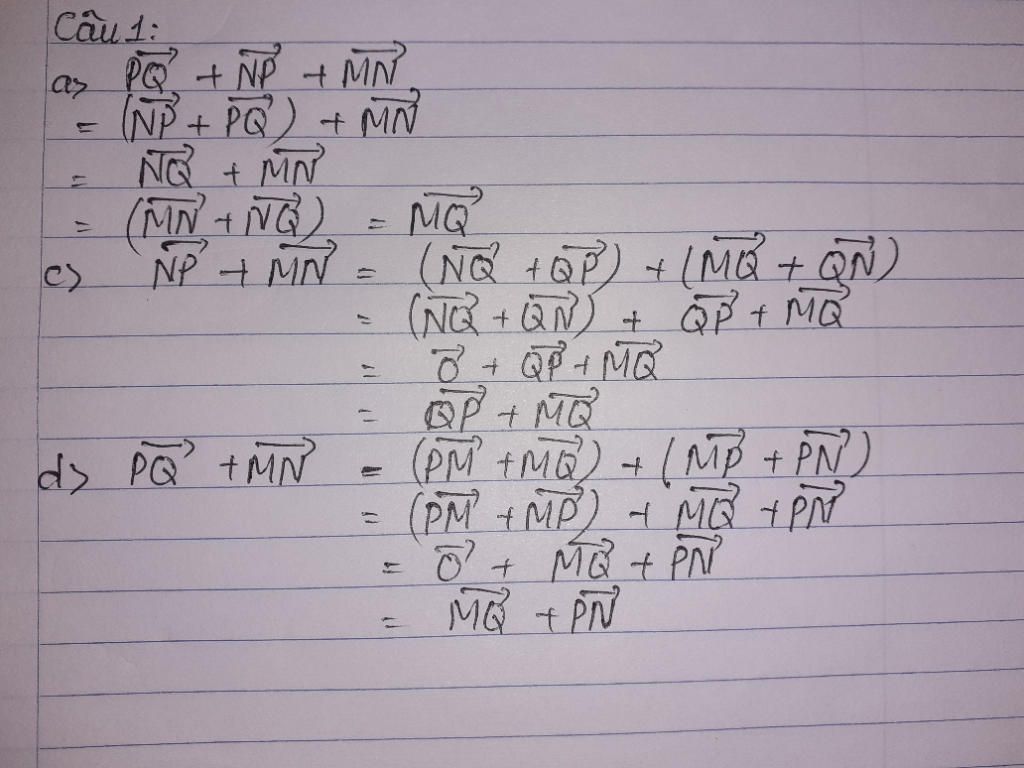 Câu 1:
a> $\overrightarrow{PQ} + \overrightarrow{NP} + \overrightarrow{MN}$
$= (\overrightarrow{NP} + \overrightarrow{PQ}) + \overrightarrow{MN}$
$= \overrightarrow{NQ} + \overrightarrow{MN}$
$= (\overrightarrow{MN} + \overrightarrow{NQ}) = \overrightarrow{MQ}$
c> $\overrightarrow{NP} + \overrightarrow{MN} = (\overrightarrow{NQ} + \overrightarrow{QP}) + (\overrightarrow{MQ} + \overrightarrow{QN})$
$= (\overrightarrow{NQ} + \overrightarrow{QN}) + \overrightarrow{QP} + \overrightarrow{MQ}$
$= \overrightarrow{O} + \overrightarrow{QP} + \overrightarrow{MQ}$
$= \overrightarrow{QP} + \overrightarrow{MQ}$
d> $\overrightarrow{PQ} + \overrightarrow{MN} = (\overrightarrow{PM} + \overrightarrow{MQ}) + (\overrightarrow{MP} + \overrightarrow{PN})$
$= (\overrightarrow{PM} + \overrightarrow{MP}) + \overrightarrow{MQ} + \overrightarrow{PN}$
$= \overrightarrow{O} + \overrightarrow{MQ} + \overrightarrow{PN}$
$= \overrightarrow{MQ} + \overrightarrow{PN}$